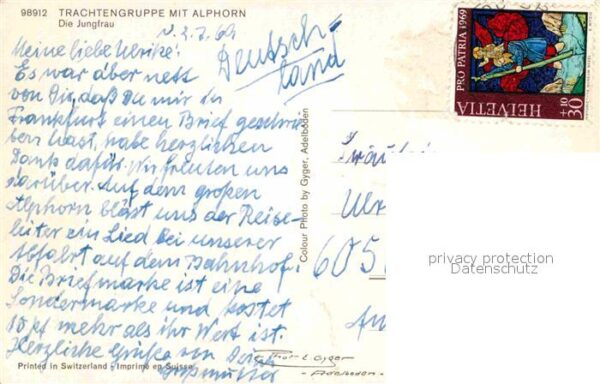 98912 TRACHTENGRUPPE MIT ALPHORN
Die Jungfrau
Deutsch-
land
Meine liebe Ulrike!
Es war aber nett
von Dir, daß Du mir in
Frankfurt einen Brief geschrie
ben hast, habe herzlichen
Dank dafür. Wir freuten uns
darüber. Auf dem großen
Alphorn bläst uns der Reise-
leiter ein Lied bei unserer
Abfahrt auf dem Bahnhof.
Die Briefmarke ist eine
Sondermarke und kostet
10 pf mehr als ihr Wert ist.
Herzliche Grüße von Deiner
Großmutter
Printed in Switzerland - Imprimé en Suisse
Colour Photo by Gyger, Adelboden
E. Gyger
Adelboden
PRO PATRIA 1969
HELVETIA
30
+10
Fräulein
Ulr
605
privacy protection
Datenschutz